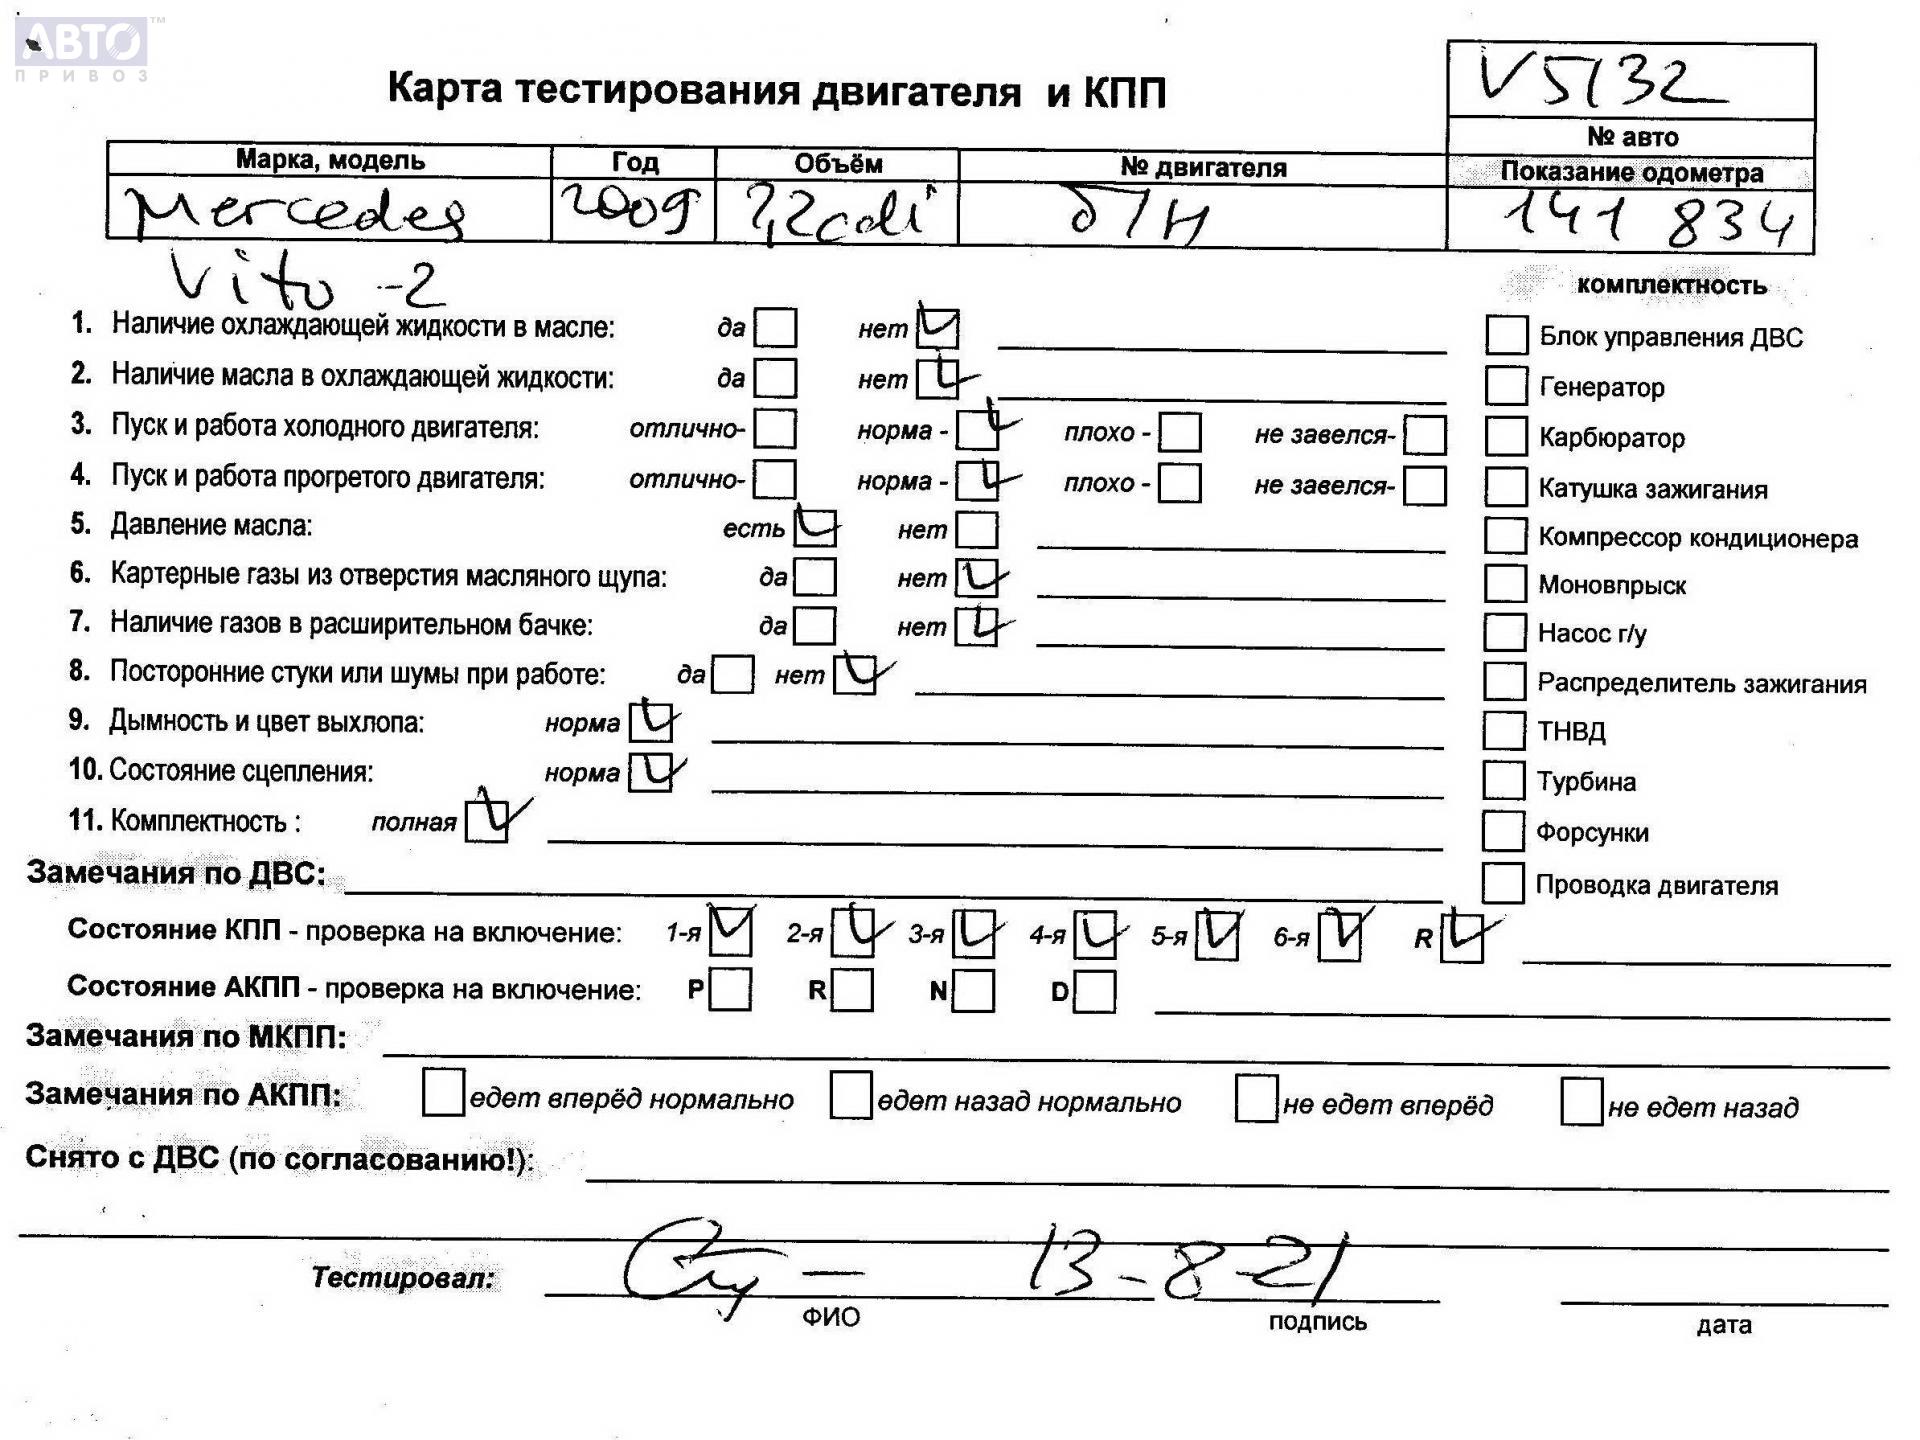 АВТО™
ПРИВОЗ
Карта тестирования двигателя и КПП
V5132
№ авто
Марка, модель Год Объём № двигателя Показание одометра
Mercedes 2009 2,2cdi б/н 141 834
Vito -2
комплектность
1. Наличие охлаждающей жидкости в масле: да нет
Блок управления ДВС
2. Наличие масла в охлаждающей жидкости: да нет
Генератор
3. Пуск и работа холодного двигателя: отлично- норма - плохо - не завелся-
Карбюратор
4. Пуск и работа прогретого двигателя: отлично- норма - плохо - не завелся-
Катушка зажигания
5. Давление масла: есть нет
Компрессор кондиционера
6. Картерные газы из отверстия масляного щупа: да нет
Моновпрыск
7. Наличие газов в расширительном бачке: да нет
Насос г/у
8. Посторонние стуки или шумы при работе: да нет
Распределитель зажигания
9. Дымность и цвет выхлопа: норма
ТНВД
10. Состояние сцепления: норма
Турбина
11. Комплектность : полная
Форсунки
Замечания по ДВС:
Проводка двигателя
Состояние КПП - проверка на включение: 1-я 2-я 3-я 4-я 5-я 6-я R
Состояние АКПП - проверка на включение: P R N D
Замечания по МКПП:
Замечания по АКПП: едет вперёд нормально едет назад нормально не едет вперёд не едет назад
Снято с ДВС (по согласованию!):
Тестировал: 13-8-21
ФИО подпись дата